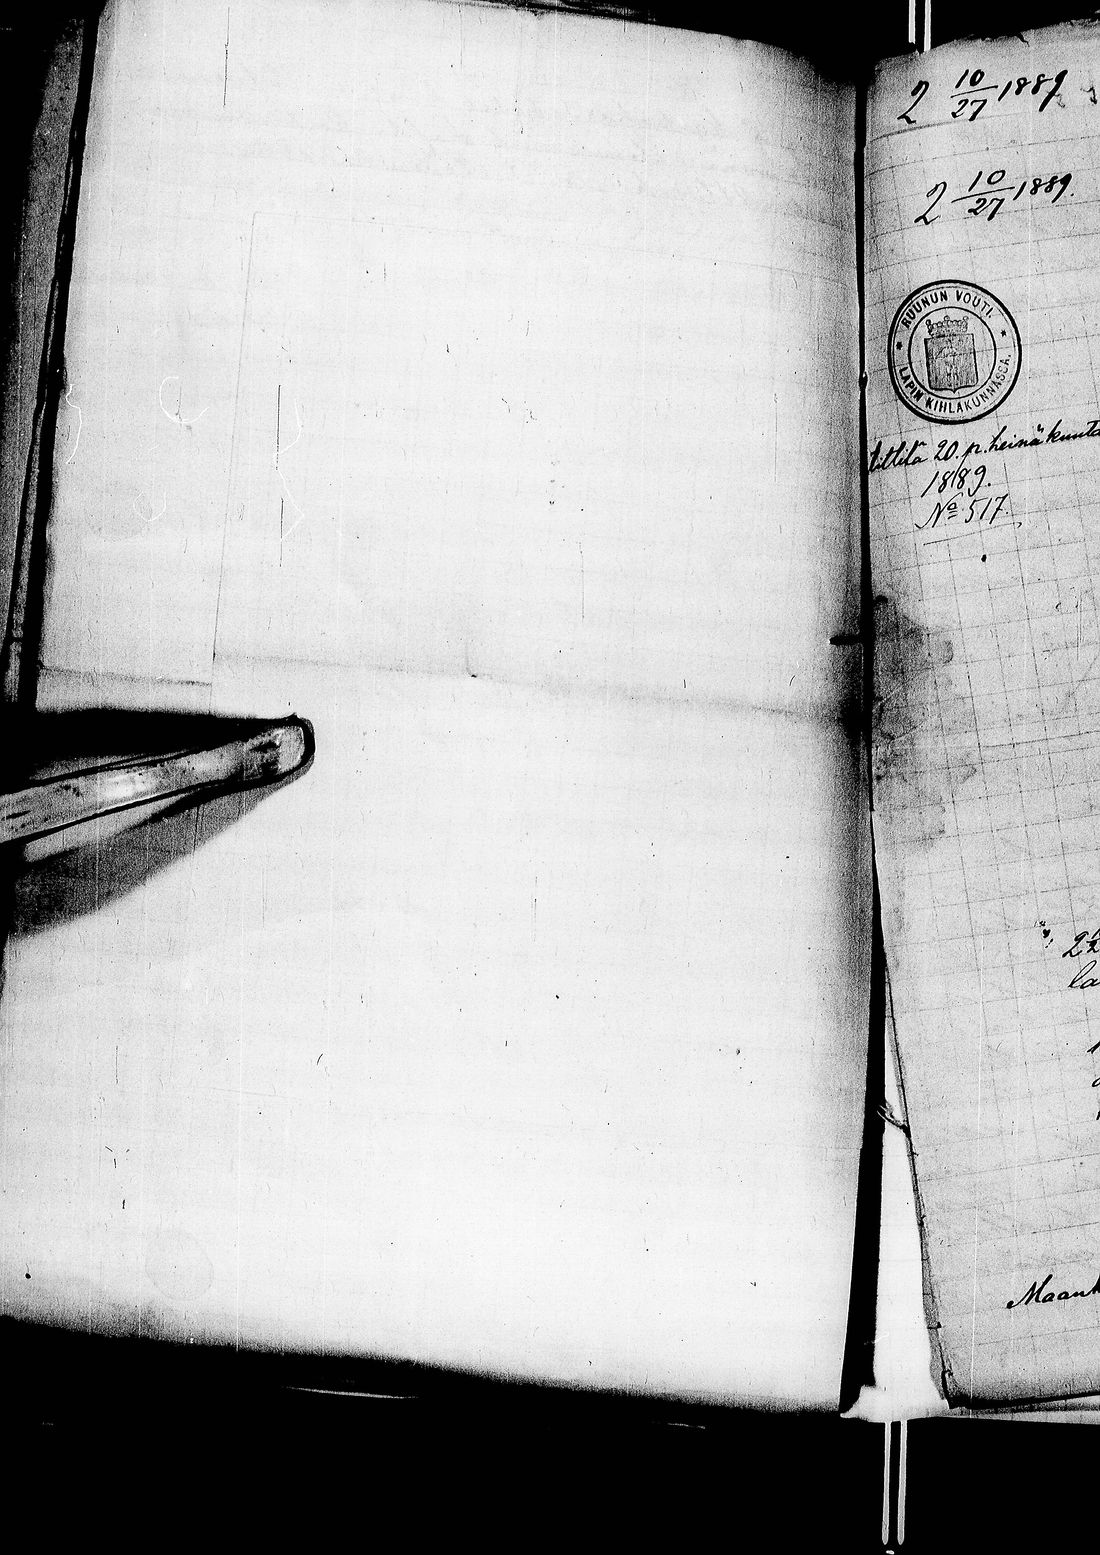 2 10/27 1889
2 10/27 1889.
RUUNUN VOUTI.
LAPIN KIHLAKUNNASSA.
20. p. heinäkuuta
1889.
No 517.
2½
la
Maank